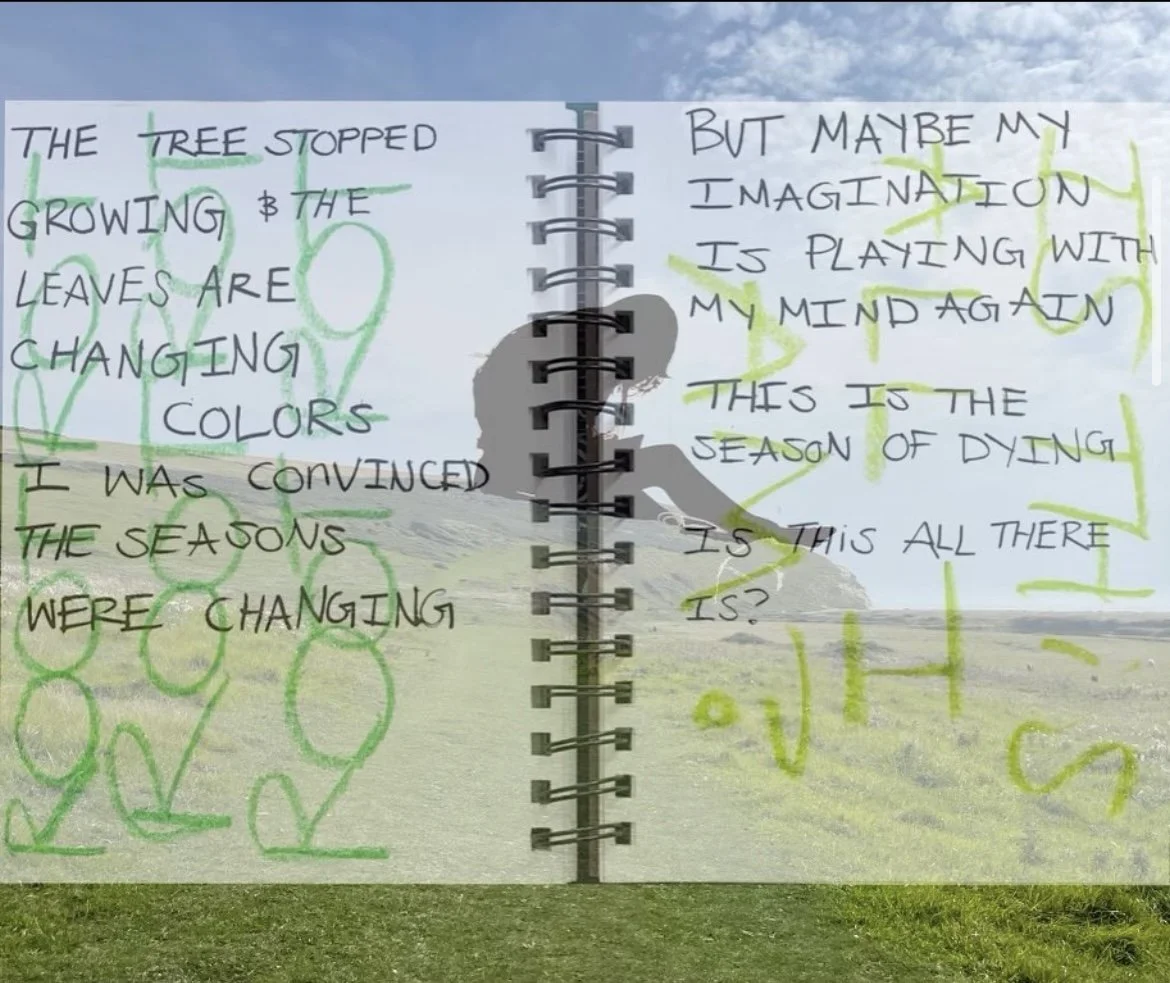 THE TREE STOPPED
GROWING & THE
LEAVES ARE
CHANGING
COLORS
I WAS CONVINCED
THE SEASONS
WERE CHANGING
ROOT ROT
ROOT ROT
ROOT ROT
BUT MAYBE MY
IMAGINATION
IS PLAYING WITH
MY MIND AGAIN
THIS IS THE
SEASON OF DYING
IS THIS ALL THERE
IS?